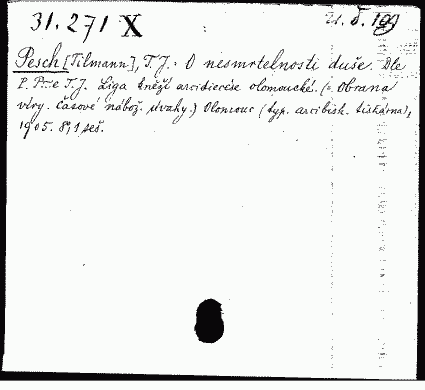 31.271 X
Pesch [Tilmann], T.J.: O nesmrtelnosti duše. Dle
P. P–e T.J. Liga kněží arcidiecése olomoucké. (= Obrana
víry. Časové nábož. úvahy.) Olomouc (typ. arcibisk. tiskárna),
1905. 8°, 1 seš.